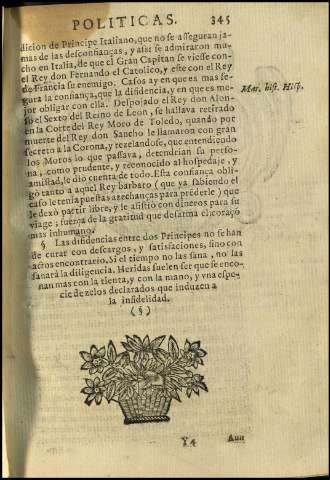 POLITICAS. 345
dicion de Principe Italiano, que no se asseguran ja-
mas de las desconfianças, y assi se admiraron mu-
cho en Italia, de que el Gran Capitan se viesse con-
el Rey don Fernando el Catolico, y este con el Rey
de Francia su enemigo. Casos ay en que es mas se-
gura la confiança, que la difidencia, y en que es me-
jor obligar con ella. Despojado el Rey don Alon-
so el Sexto del Reino de Leon, se hallava retirado
en la Corte del Rey Moro de Toledo, quando por
muerte del Rey don Sancho le llamaron con gran
secreto a la Corona, y rezelandose, que entendiendo
los Moros lo que passava, detendrian su perso-
na, como prudente, y reconocido al hospedaje, y
amistad, le dio cuenta de todo. Esta confiança obli-
gó tanto a aquel Rey barbaro (que ya sabiendo el
caso le tenia puestas azechanças para prēderle) que
le dexó partir libre, y le assistio con dineros para su
viage; fuerça de la gratitud que desarma el coraçō
mas inhumano.
Mar. hist. Hisp.
§ Las difidencias entre dos Principes no se han
de curar con descargos, y satisfaciones, sino con
actos en contrario. Si el tiempo no las sana, no las
sanará la diligencia. Heridas suelen ser que se enco-
nan mas con la tienta, y con la mano, y vna espe-
cie de zelos declarados que induzen a
la infidelidad.
(§)
Y4 Aun